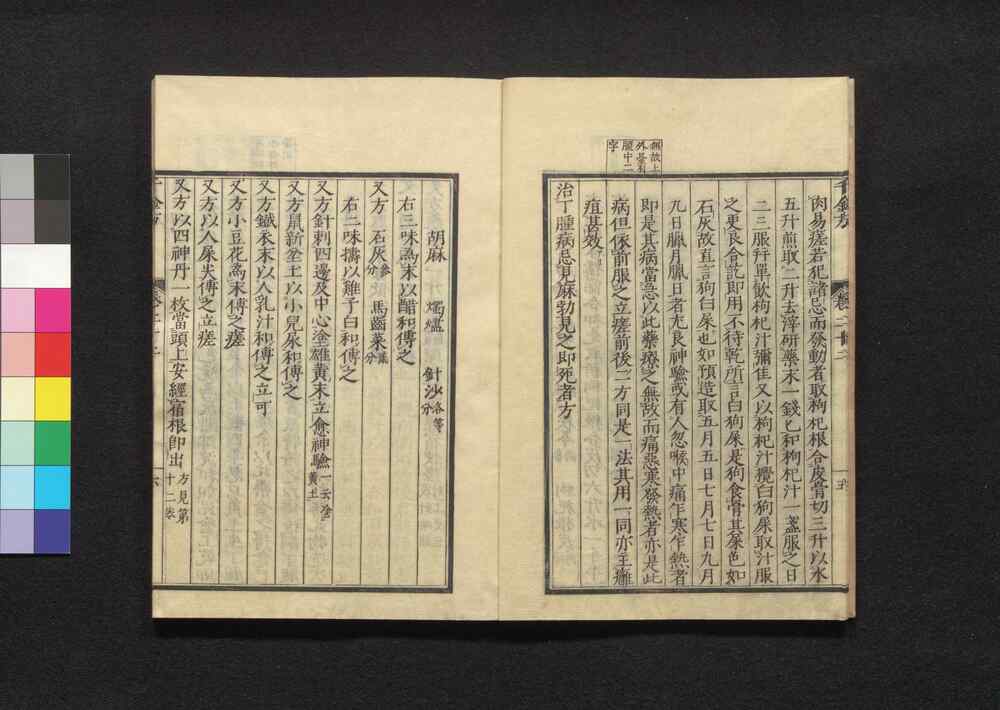 千金方
卷二十二
肉易瘥若犯諸忌而發動者取枸杞根合皮骨切三升以水
五升煎取二升去滓研藥末一錢匕和枸杞汁一盞服之日
二三服幷單飲枸杞汁彌佳又以枸杞汁攪白狗屎取汁服
之更良合訖即用不待乾所言白狗屎是狗食骨其屎色如
石灰故直言狗白屎也如預造取五月五日七月七日九月
九日臘月臘日者尤良神驗或有人忽喉中痛乍寒乍熱者
即是其病當急以此藥療之無故而痛惡寒發熱者亦是此
病但依前服之立瘥前後二方同是一法其用一同亦主癰
疽甚效
治丁腫病忌見麻勃見之即死者方
無故上
外臺有
腫中二
字
胡麻 燭燼 針沙各等分
右三味爲末以醋和傅之
又方 石灰三分 馬齒菜二分
右二味擣以雞子白和傅之
又方針刺四邊及中心塗雄黃末立愈神驗一云塗黃土
又方鼠新坌土以小兒尿和傅之
又方鐵衣末以人乳汁和傅之立可
又方小豆花爲末傅之瘥
又方以人屎尖傅之立瘥
又方以四神丹一枚當頭上安經宿根即出方見第十二卷
六